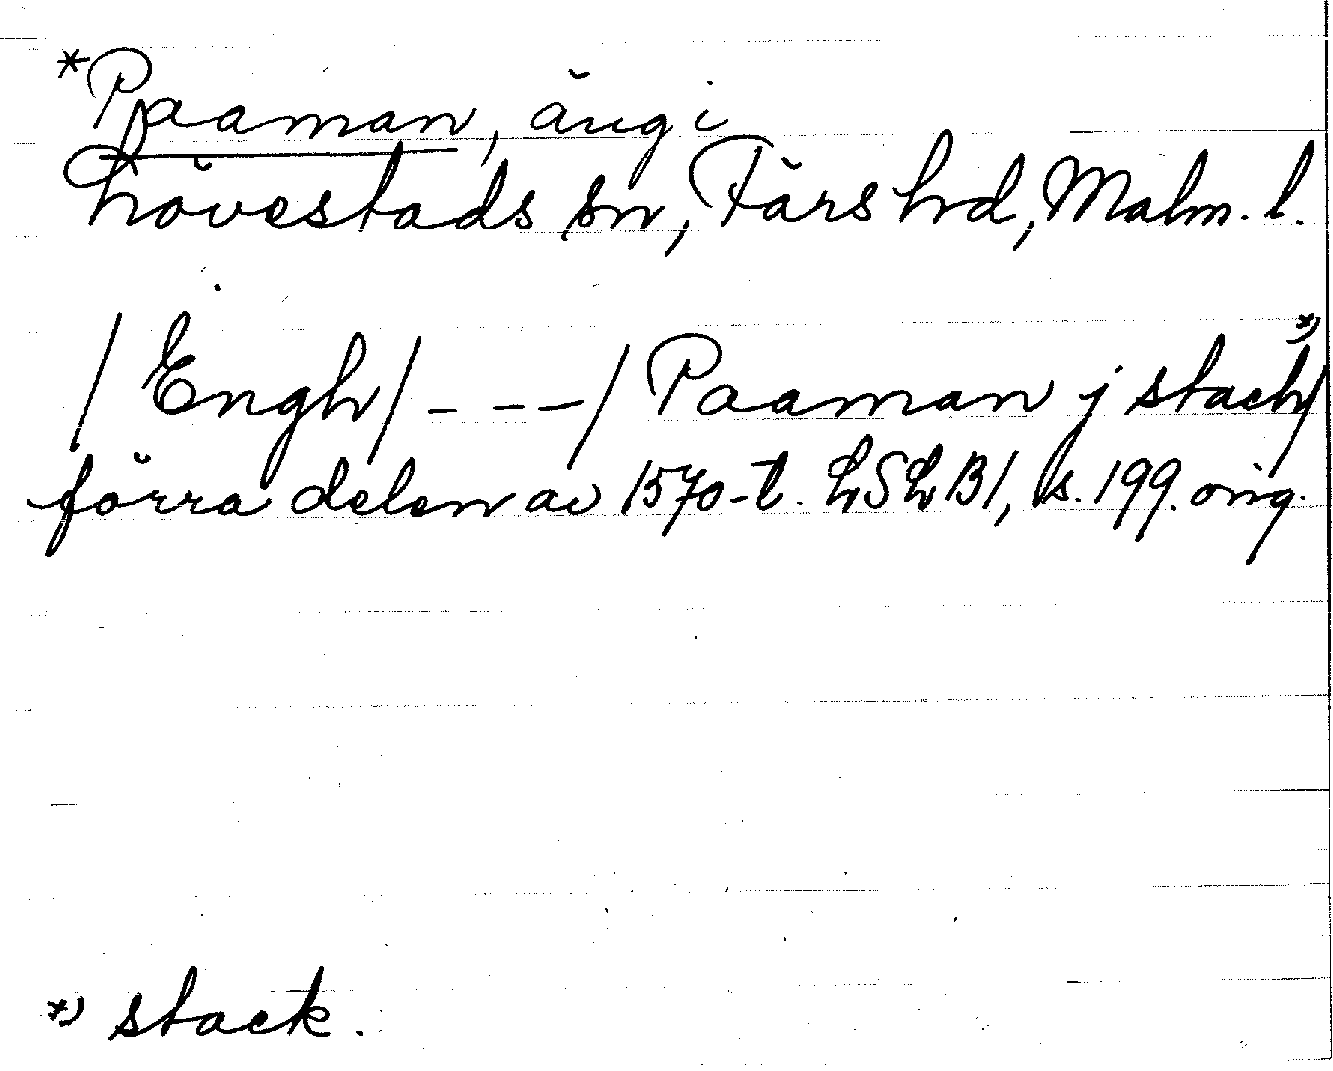 *Paaman, äng i
Lövestads sn, Färs hd, Malm. l.
/Engh/ - - - / Paaman j stach/ *)
förra delen av 1570-t. LSLB1, s. 199. orig.
*) stack.